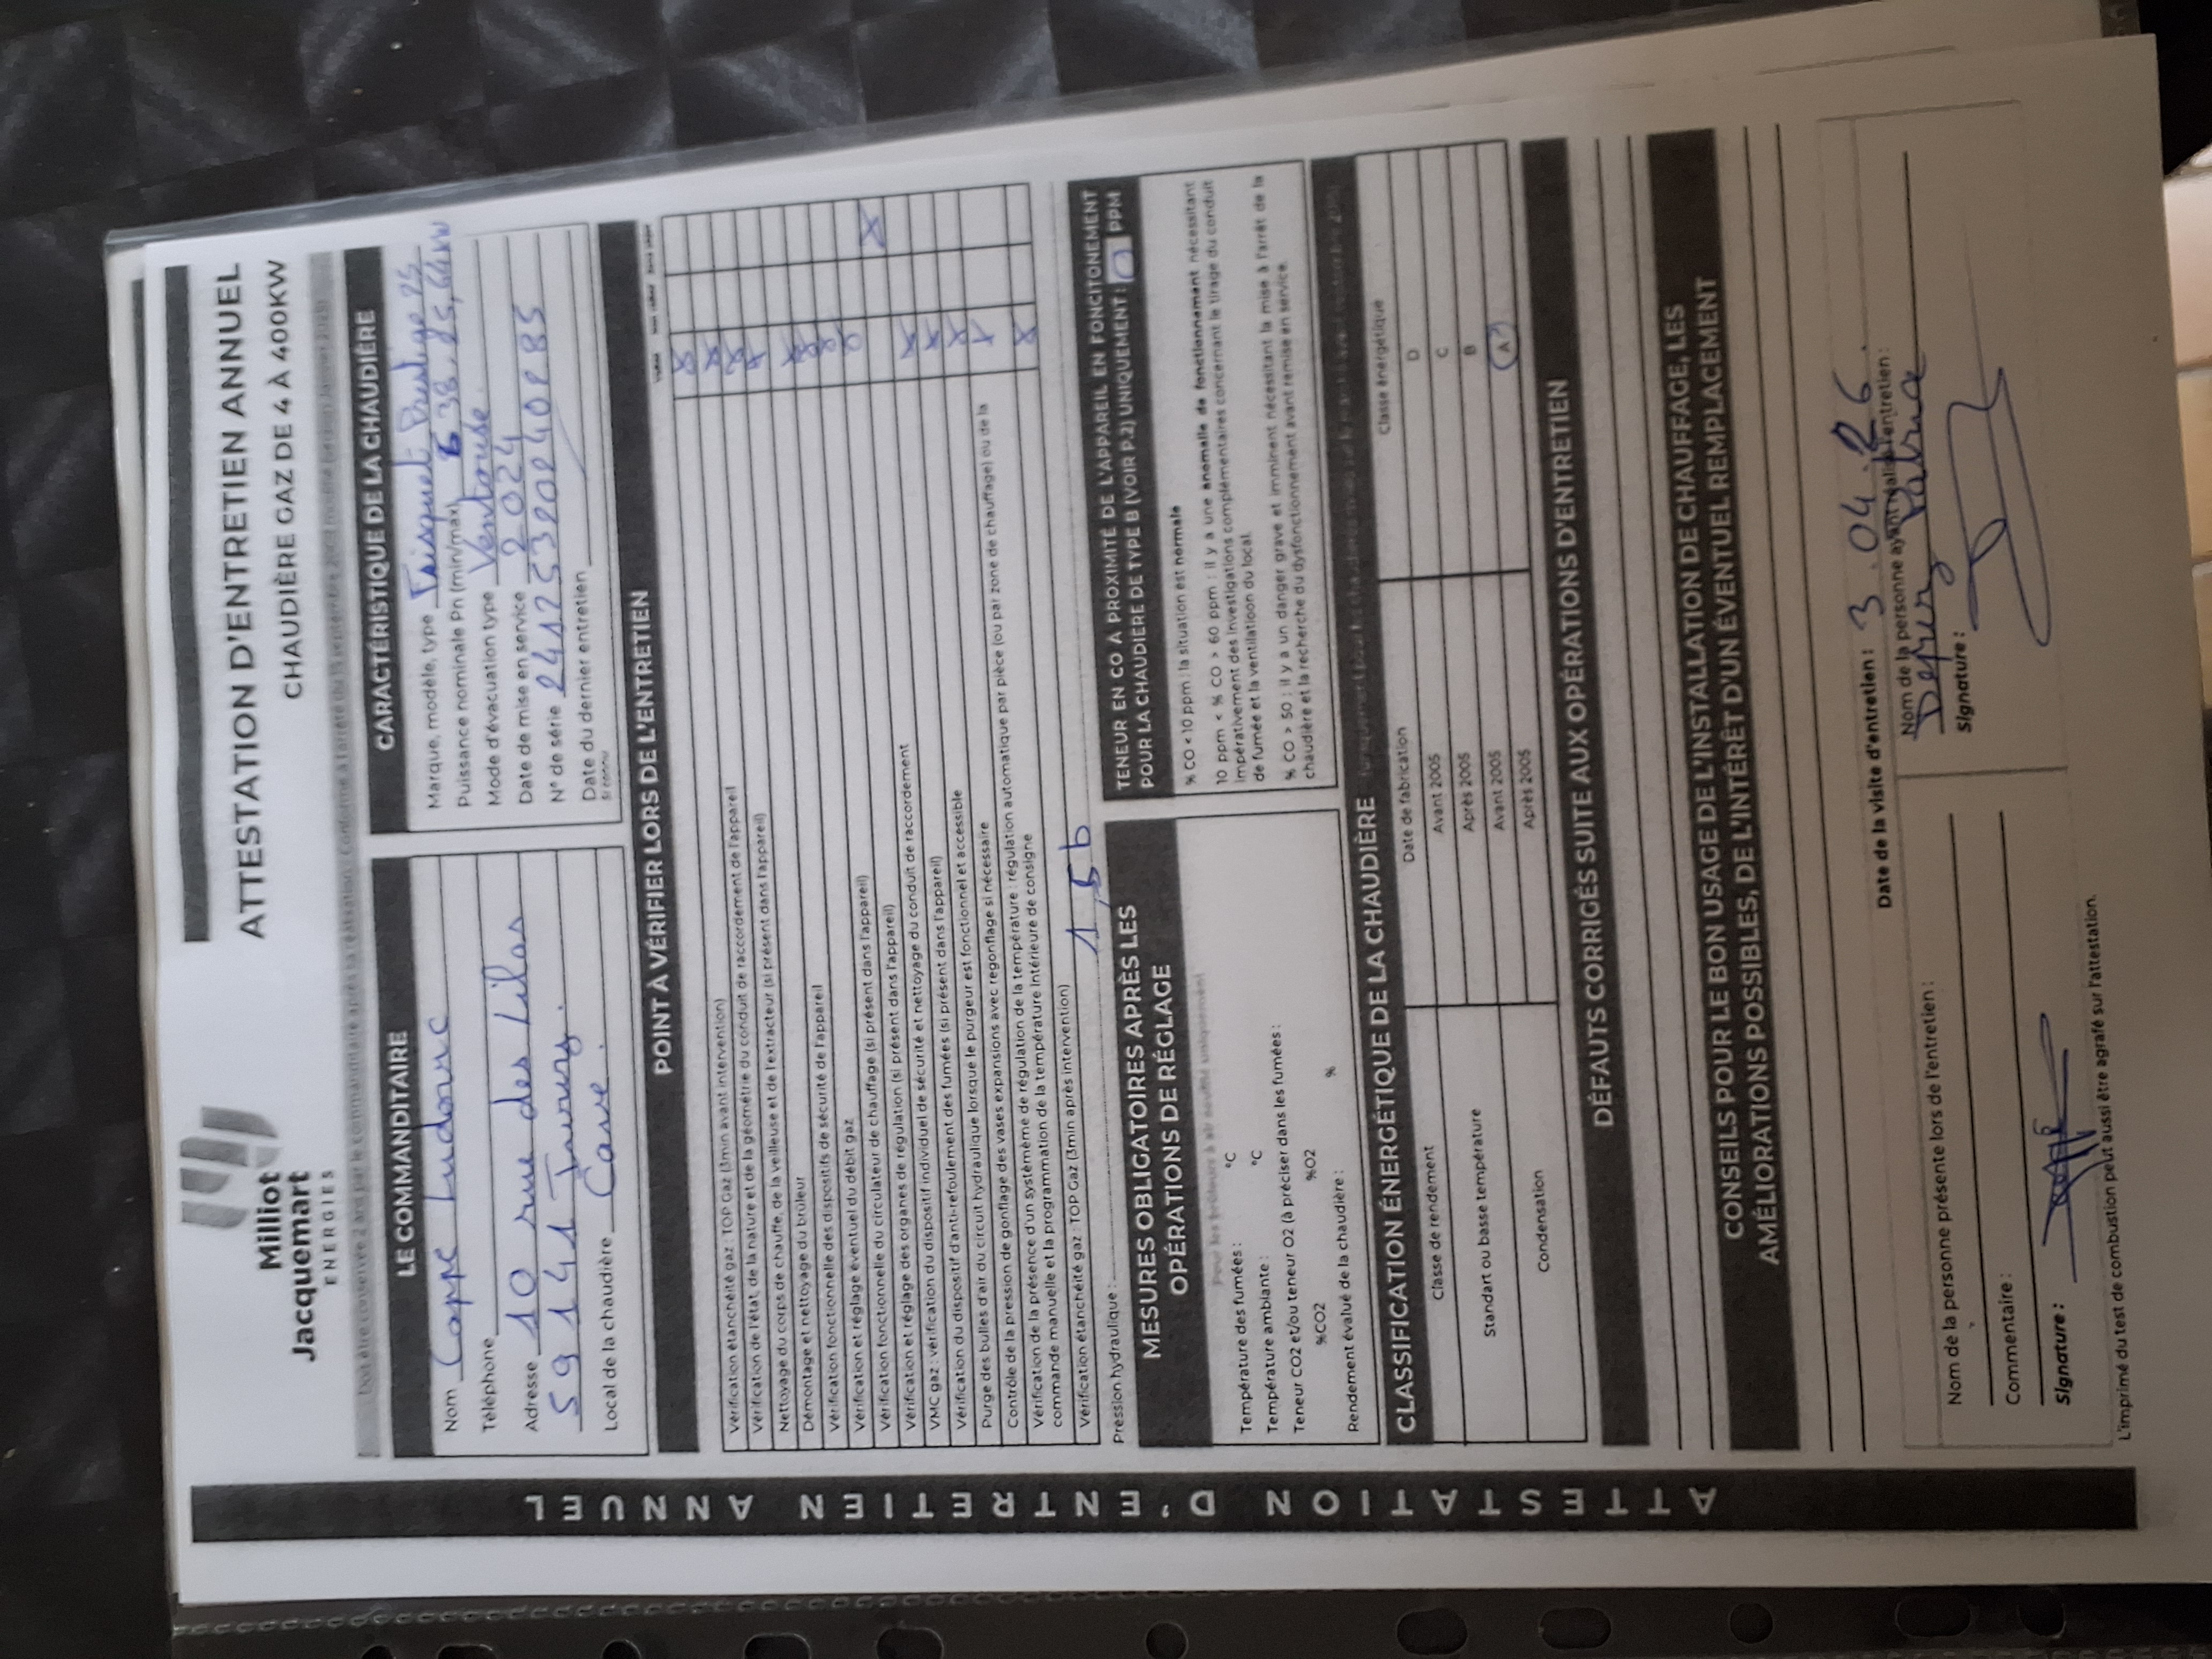 Milliot
Jacquemart
ENERGIES
ATTESTATION D'ENTRETIEN ANNUEL
CHAUDIÈRE GAZ DE 4 À 400KW
Doit être conservée 2 ans par le commanditaire après la réalisation. Conforme à l'arrêté du 15 septembre
LE COMMANDITAIRE
Nom Cappe Ludovic
Téléphone
Adresse 10 rue des Lilas
59141 Iwuy.
Local de la chaudière Cave.
CARACTÉRISTIQUE DE LA CHAUDIÈRE
Marque, modèle, type Frisquet Prestige 25
Puissance nominale Pn (min/max)
Mode d'évacuation type Ventouse.
Date de mise en service 2024
N° de série
Date du dernier entretien
POINT À VÉRIFIER LORS DE L'ENTRETIEN
Vérification étanchéité gaz : TOP Gaz (3min avant intervention)
Vérification de l'état, de la nature et de la géométrie du conduit de raccordement de l'appareil
Nettoyage du corps de chauffe, de la veilleuse et de l'extracteur (si présent dans l'appareil)
Démontage et nettoyage du brûleur
Vérification fonctionnelle des dispositifs de sécurité de l'appareil
Vérification et réglage éventuel du débit gaz
Vérification fonctionnelle du circulateur de chauffage (si présent dans l'appareil)
Vérification et réglage des organes de régulation (si présent dans l'appareil)
VMC gaz : vérification du dispositif individuel de sécurité et nettoyage du conduit de raccordement
Vérification du dispositif d'anti-refoulement des fumées (si présent dans l'appareil)
Purge des bulles d'air du circuit hydraulique lorsque le purgeur est fonctionnel et accessible
Contrôle de la pression de gonflage des vases expansions avec regonflage si nécessaire
Vérification de la présence d'un système de régulation de la température : régulation automatique par pièce (ou par zone de chauffage) ou de la
commande manuelle et la programmation de la température intérieure de consigne
Vérification étanchéité gaz : TOP Gaz (3min après intervention)
Pression hydraulique : 1,5b
MESURES OBLIGATOIRES APRÈS LES
OPÉRATIONS DE RÉGLAGE
Température des fumées : °C
Température ambiante : °C
Teneur CO2 et/ou teneur O2 (à préciser dans les fumées :
%CO2 %O2
Rendement évalué de la chaudière : %
TENEUR EN CO A PROXIMITÉ DE L'APPAREIL EN FONCITONEMENT
POUR LA CHAUDIÈRE DE TYPE B (VOIR P.2) UNIQUEMENT : 0 PPM
% CO < 10 ppm : la situation est normale
10 ppm < % CO > 60 ppm : il y a une anomalie de fonctionnement nécessitant
impérativement des investigations complémentaires concernant le tirage du conduit
de fumée et la ventilatioon du local.
% CO > 50 : il y a un danger grave et imminent nécessitant la mise à l'arrêt de la
chaudière et la recherche du dysfonctionnement avant remise en service.
CLASSIFICATION ÉNERGÉTIQUE DE LA CHAUDIÈRE
Classe de rendement Date de fabrication Classe énergétique
Standart ou basse température Avant 2005 D
Après 2005 C
Condensation Avant 2005 B
Après 2005 A
DÉFAUTS CORRIGÉS SUITE AUX OPÉRATIONS D'ENTRETIEN
CONSEILS POUR LE BON USAGE DE L'INSTALLATION DE CHAUFFAGE, LES
AMÉLIORATIONS POSSIBLES, DE L'INTÉRÊT D'UN ÉVENTUEL REMPLACEMENT
Date de la visite d'entretien : 3.04.26.
Nom de la personne présente lors de l'entretien :
Commentaire :
Signature :
Nom de la personne ayant réalisé l'entretien :
Signature :
L'imprimé du test de combustion peut aussi être agrafé sur l'attestation.
ATTESTATION D'ENTRETIEN ANNUEL